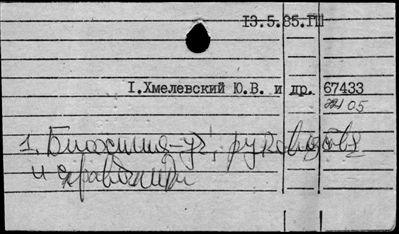 13.5.85.ГШ
1.Хмелевский Ю.В. и др. 67433
05
1. Биохимия-уч, руководства
и справочники